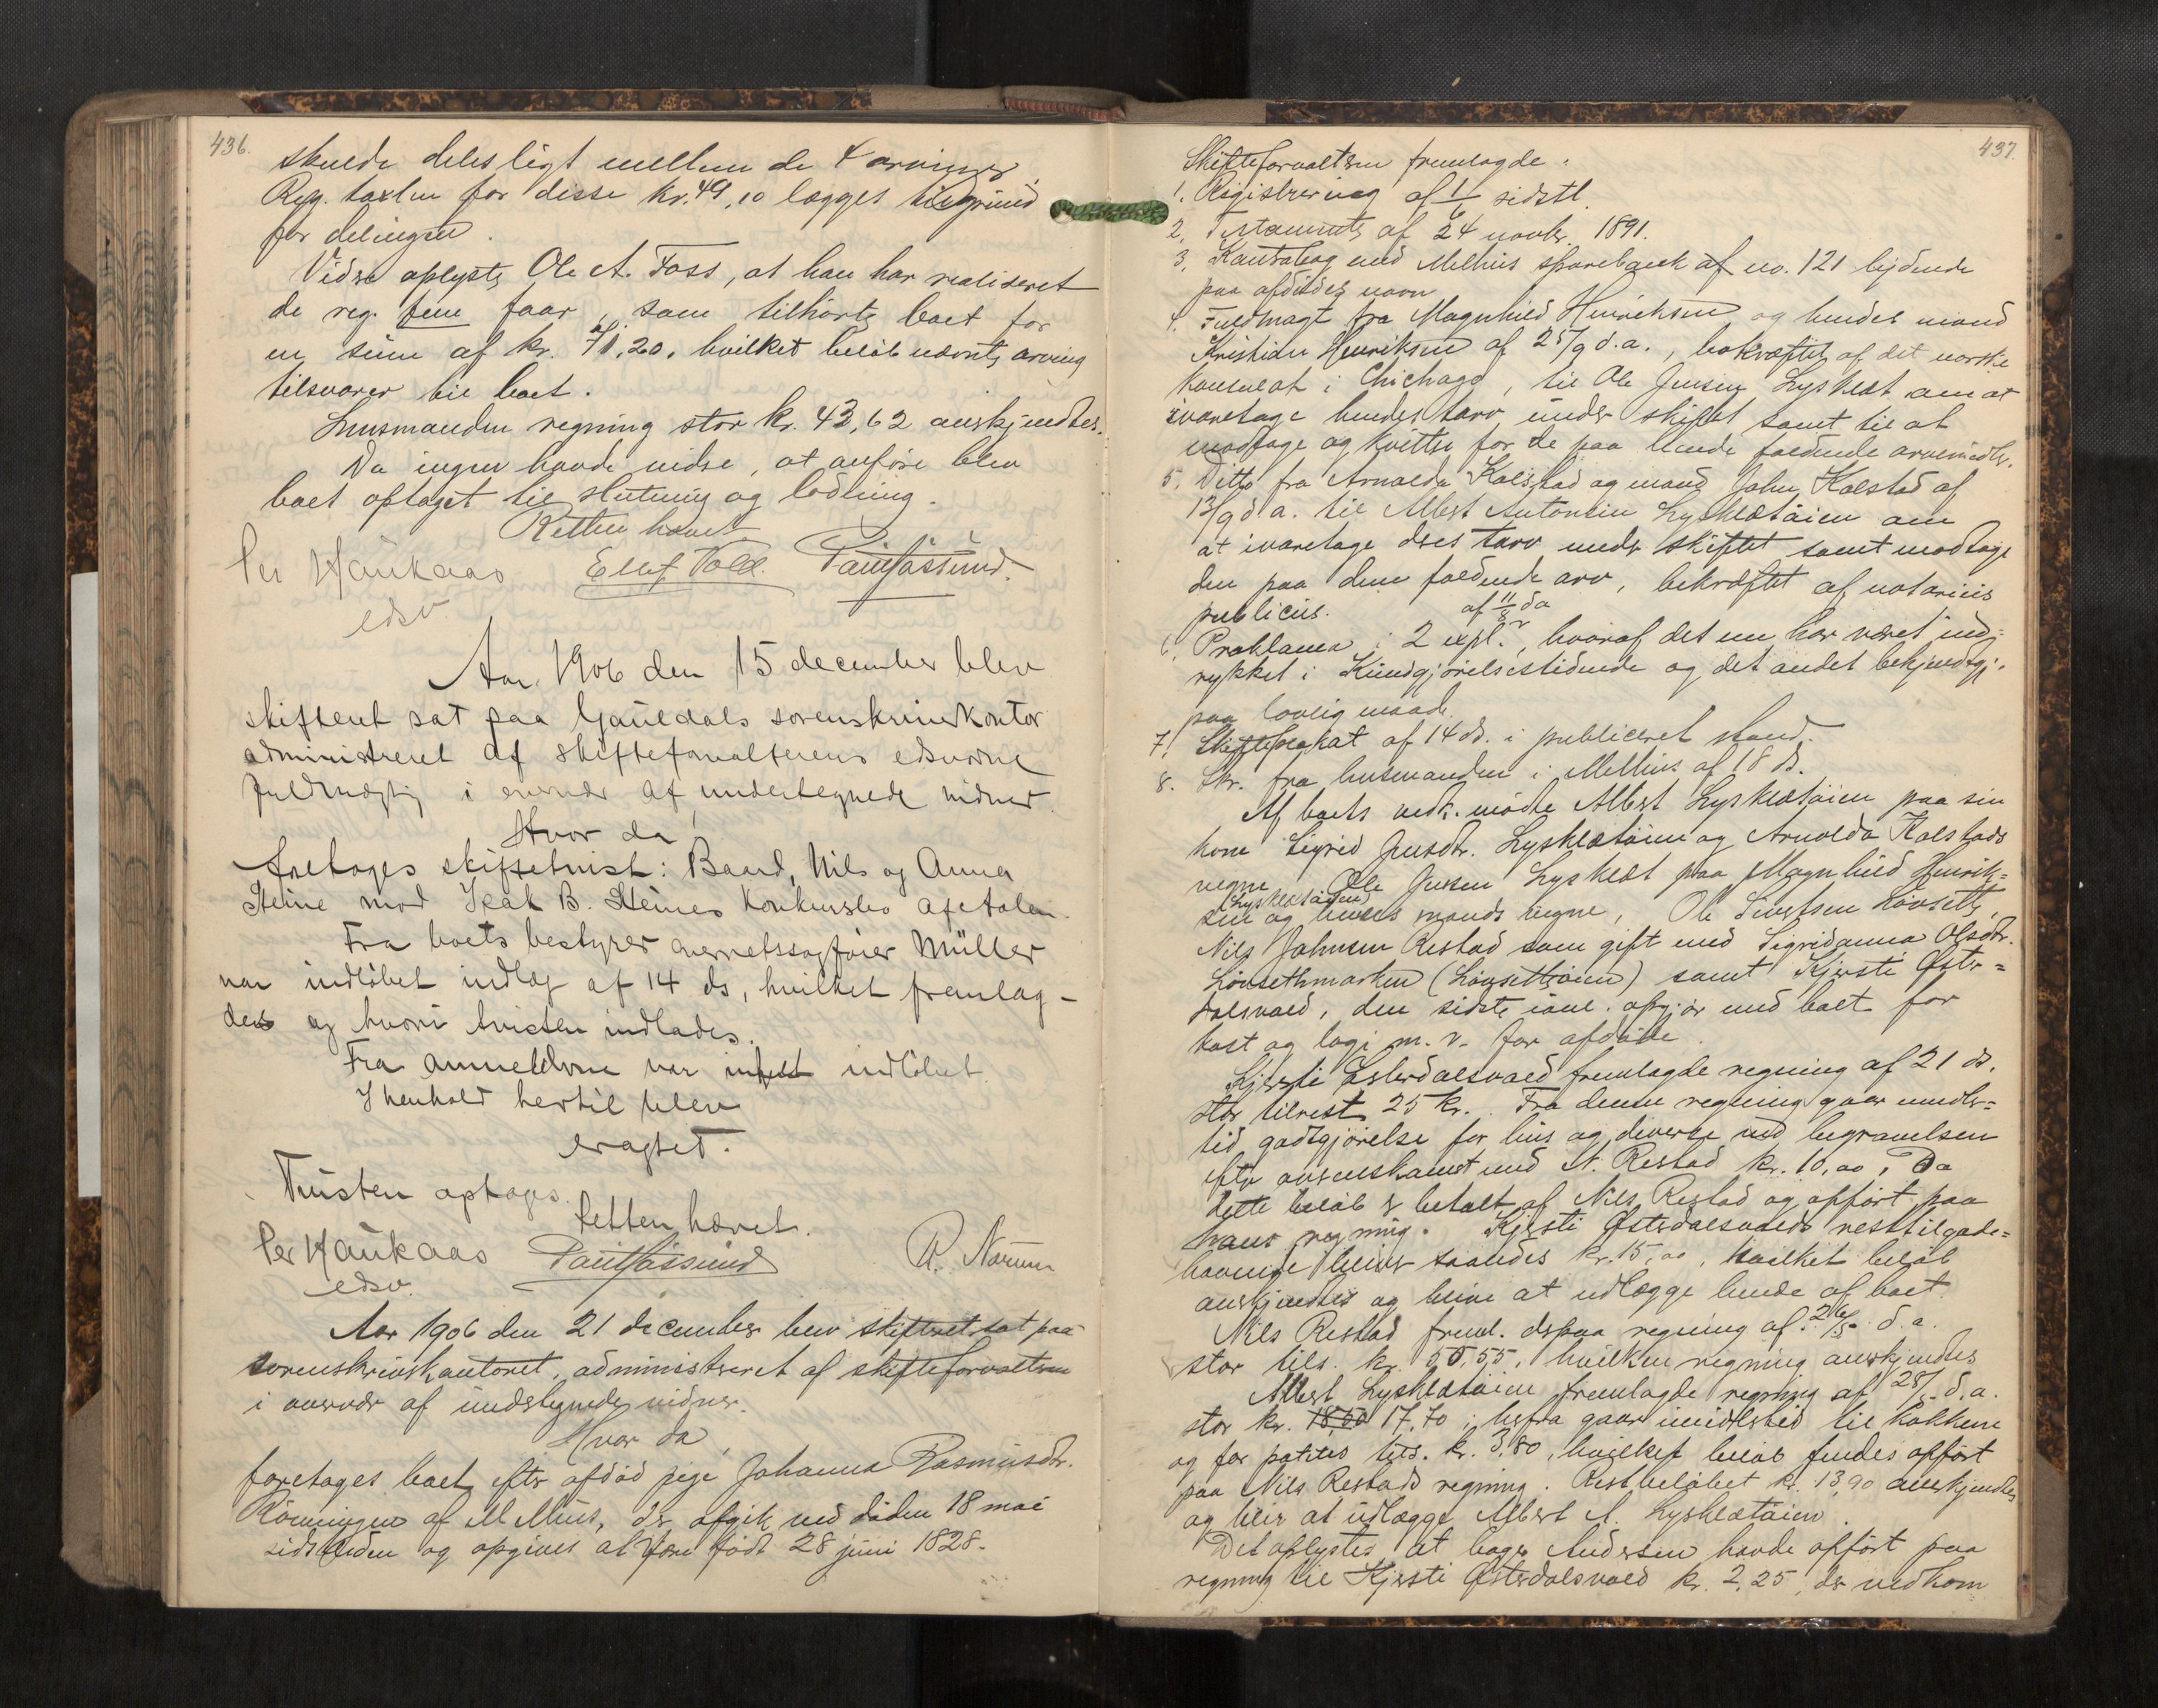 436.
skulde deles ligt mellem de 4 arvinger,
Reg. taxten for disse kr. 49,10 lægges til grund
for delingen.
Videre oplyste Ole A. Foss, at han har realiseret
de reg. fem faar, som tilhørte boet for
en sum af kr. 71,20, hvilket beløb nævnte arving
tilsvarer til boet.
Lensmanden regning stor kr. 43,62 anerkjendtes.
Da ingen havde videre, at anføre blev
boet optaget til slutning og lodning.
Retten hævet
Per Haukaas Elef Vold. Paul Aasund.
edsv.
Aar 1906 den 15 december blev
skifteret sat paa Gauldals sorenskriverkontor
administreret af skifteforvalterens edsvorne
fuldmægtig i overvær af undertegnede vidner.
Hvor da,
foretoges skiftetvist: Baard, Nils og Anna
Steine mod Isak B. Steines konkursbo afetalen
Fra boets bestyrer overretssagfører Müller
var indløbet indlæg af 14 ds, hvilket fremlag-
des og hvori tvisten indlades.
Fra anmelderne var intet indløbet
I henhold hertil blev
eragtet.
Tvisten optages.
Retten hævet.
Per Haukaas Paul Aasund R. Norum
edsv.
Aar 1906 den 21 december blev skifteret sat paa
sorenskriverkontoret, administreret af skifteforvalteren
i overvær af undertegnede vidner.
Hvor da,
foretoges boet efter afdød pige Johanna Rasmusdtr.
Rønningen af Melhus, der afgik ved døden 18 mai
sidstleden og opgives at være født 28 juni 1828.
437.
Skifteforvalteren fremlagde:
1. Registrering af 1/6 sidstl.
2. Testamente af 24 novbr. 1891.
3. Kontrabog med Melhus sparebank af no. 121 lydende
paa afdødes navn
4. Fuldmagt fra Magnhild Henriksen og hendes mand
Kristian Henriksen af 25/9 d.a., bekræftet af det norske
konsulat i Chichago, til Ole Jensen Lysklet om at
ivaretage hendes tarv under skiftet samt til at
modtage og kvittere for de paa hende faldende arvemidler.
5. Ditto fra Arnolda Kalstad og mand John Kalstad af
13/9 d.a. til Albert Antonsen Lyskletøien om
at ivaretage deres tarv under skiftet samt modtage
den paa dem faldende arv, bekræftet af notarius
publicus.
af 11/8 da
6. Proklama i 2 expl., hvoraf det ene har været ind-
rykket i Kundgjørelsestidende og det andet bekjendtgj.
paa lovlig maade.
7. Skifteplakat af 14 ds. i publiceret stand.
8. Skr. fra lensmanden i Melhus af 18 ds.
Af boets vedk. mødte Albert Lyskletøien paa sin
kone Sigrid Jensdtr. Lyskletøien og Arnolda Kalstads
vegne, Ole Jensen Lysklet paa Magnhild Henrik-
(Lyskletøien)
sen og hendes mands vegne, Ole Sivertsen Lønseth,
Nils Johnsen Restad som gift med Sigridanna Olsdtr.
Lønsethmarken (Lønsethøien) samt Kjersti Øster-
dalsvold, den sidste iavl. opgjør med boet for
kost og logi m.v. for afdøde.
Kjersti Østerdalsvold fremlagde regning af 21 ds.
stor tilrest 25 kr. Fra denne regning gaar imidler-
tid godtgjørelse for hus og diverse ved begravelsen
efter overenskomst med N. Restad kr. 10,00. Da
dette beløb er betalt af Nils Restad og opført paa
hans regning. Kjersti Østerdalsvolds resttilgode-
havende bliver saaledes kr. 15,00, hvilket beløb
anerkjendtes og bliver at udlægge hende af boet.
Nils Restad freml. derpaa regning af 26/5 d.a.
stor tils. kr. 50,55, hvilken regning anerkjendtes
Albert Lyskletøien fremlagde regning af 28/5 d.a.
stor kr. 18,50 17,70; herfra gaar imidlertid til kokken
og for potetes tils. kr. 3,80, hvilket beløb findes opført
paa Nils Restads regning. Restbeløbet kr. 13,90 anerkjendtes
og blir at udlægge Albert A. Lyskletøien.
Det oplystes at bager Andersen havde opført paa
regning til Kjersti Østerdalsvold kr. 2,25, der vedkom